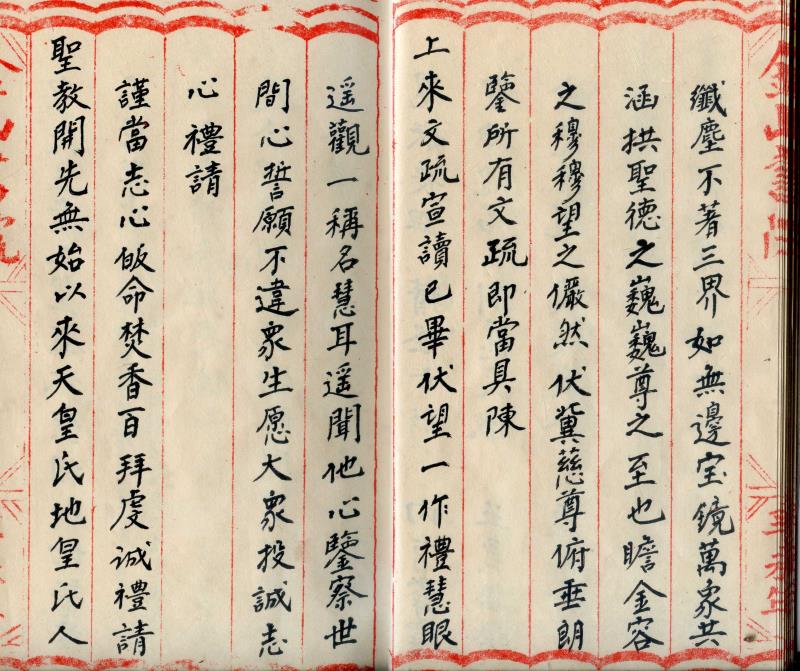 纖塵不著三界如無邊宝鏡萬象共
涵拱聖德之巍巍尊之至也瞻金容
之穆穆望之儼然伏冀慈尊俯垂朗
鑒所有文疏即當具陳
上來文疏宣讀已畢伏望一作禮慧眼
遥觀一稱名慧耳遥聞他心鑒察世
間心誓願不違衆生愿大衆投誠志
心禮請
謹當志心皈命焚香百拜虔誠禮請
聖教開先無始以來天皇氏地皇氏人